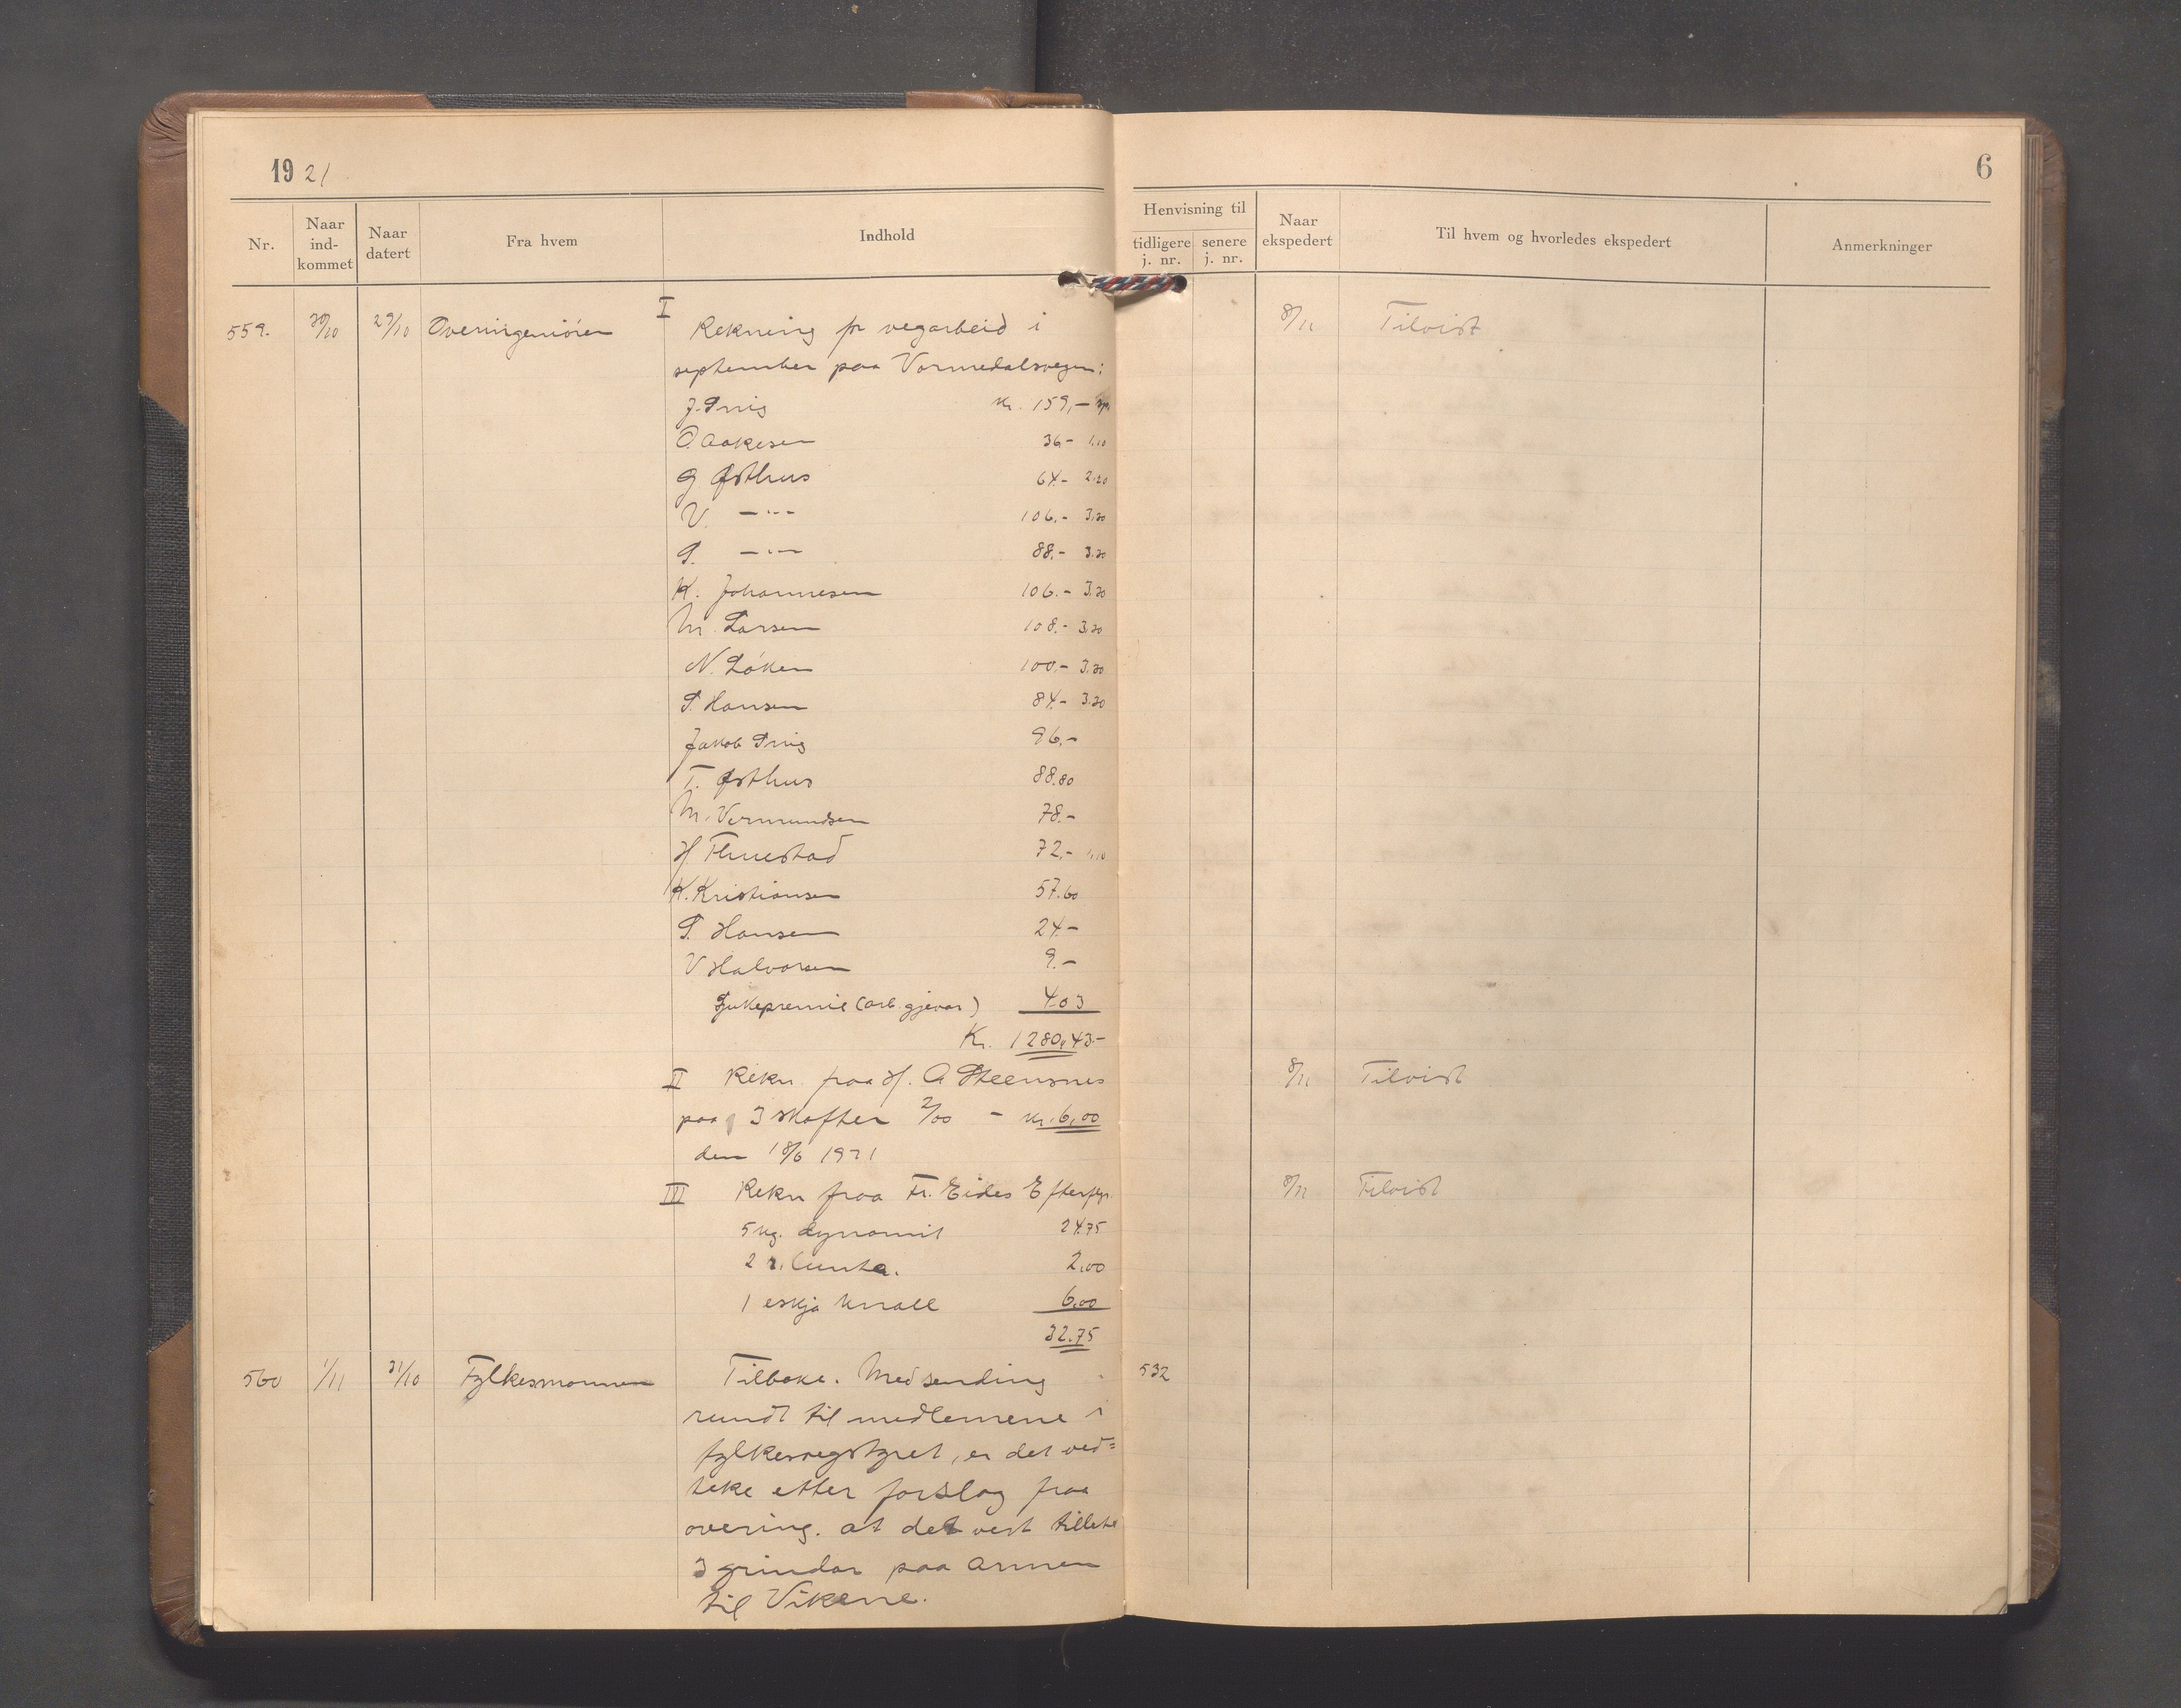 1921
6
Nr.
Naar ind-kommet
Naar datert
Fra hvem
Indhold
Henvisning til
tidligere j. nr.
senere j. nr.
Naar ekspedert
Til hvem og hvorledes ekspedert
Anmerkninger
559. 30/10 29/10 Overingeniören I Rekning fr vegarbeid i 8/11 Tilvist
september paa Vormedalsvegen:
J. Kr. 159,-
O. Aakesen 36.- 1.10
G. Østhus 64.- 2.20
V. -"- 106.- 3.30
S. -"- 88.- 3.30
K. Johannesen 106.- 3.30
M. Larsen 108.- 3.30
N. Löken 100.- 3.30
S. Hansen 84.- 3.30
Jakob 96.-
T. Østhus 88.80
M. Vermundsen 78.-
H. 72.- 1.10
K. Kristiansen 57.60
S. Hansen 24.-
V Halvorsen 9.-
Sjukepremie (arb. gjevar) 4.03
Kr. 1280,43.-
II Rekn. fraa H. A Steensnes 8/11 Tilvist
paa 3 skafter 2/00 - kr. 6,00
den 18/6 1921
III Rekn fraa Fr. Eides Efterflgr. 8/11 Tilvist
5 kg. dynamit 24.75
2 r. lunta. 2.00
1 eskja knall 6.00
32.75
560 1/11 31/10 Fylkesmannen Tilbake. Med sending 532
rundt til medlemene i
fylkesvegstyret, er det ved=
teke etter forslag fraa
overing. at det vert tillete
3 grindar paa armen
til Vikene.